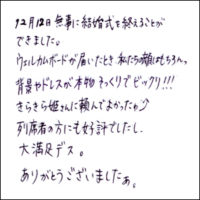 12月12日無事に結婚式を終えることが
できました。
ウェルカムボードが届いたとき私たちの顔はもちろんっ
背景やドレスが本物そっくりでビックリ!!!
きらきら姫さんに頼んでよかったゎ
列席者の方にも好評でしたし、
大満足デス。
ありがとうございましたぁ。